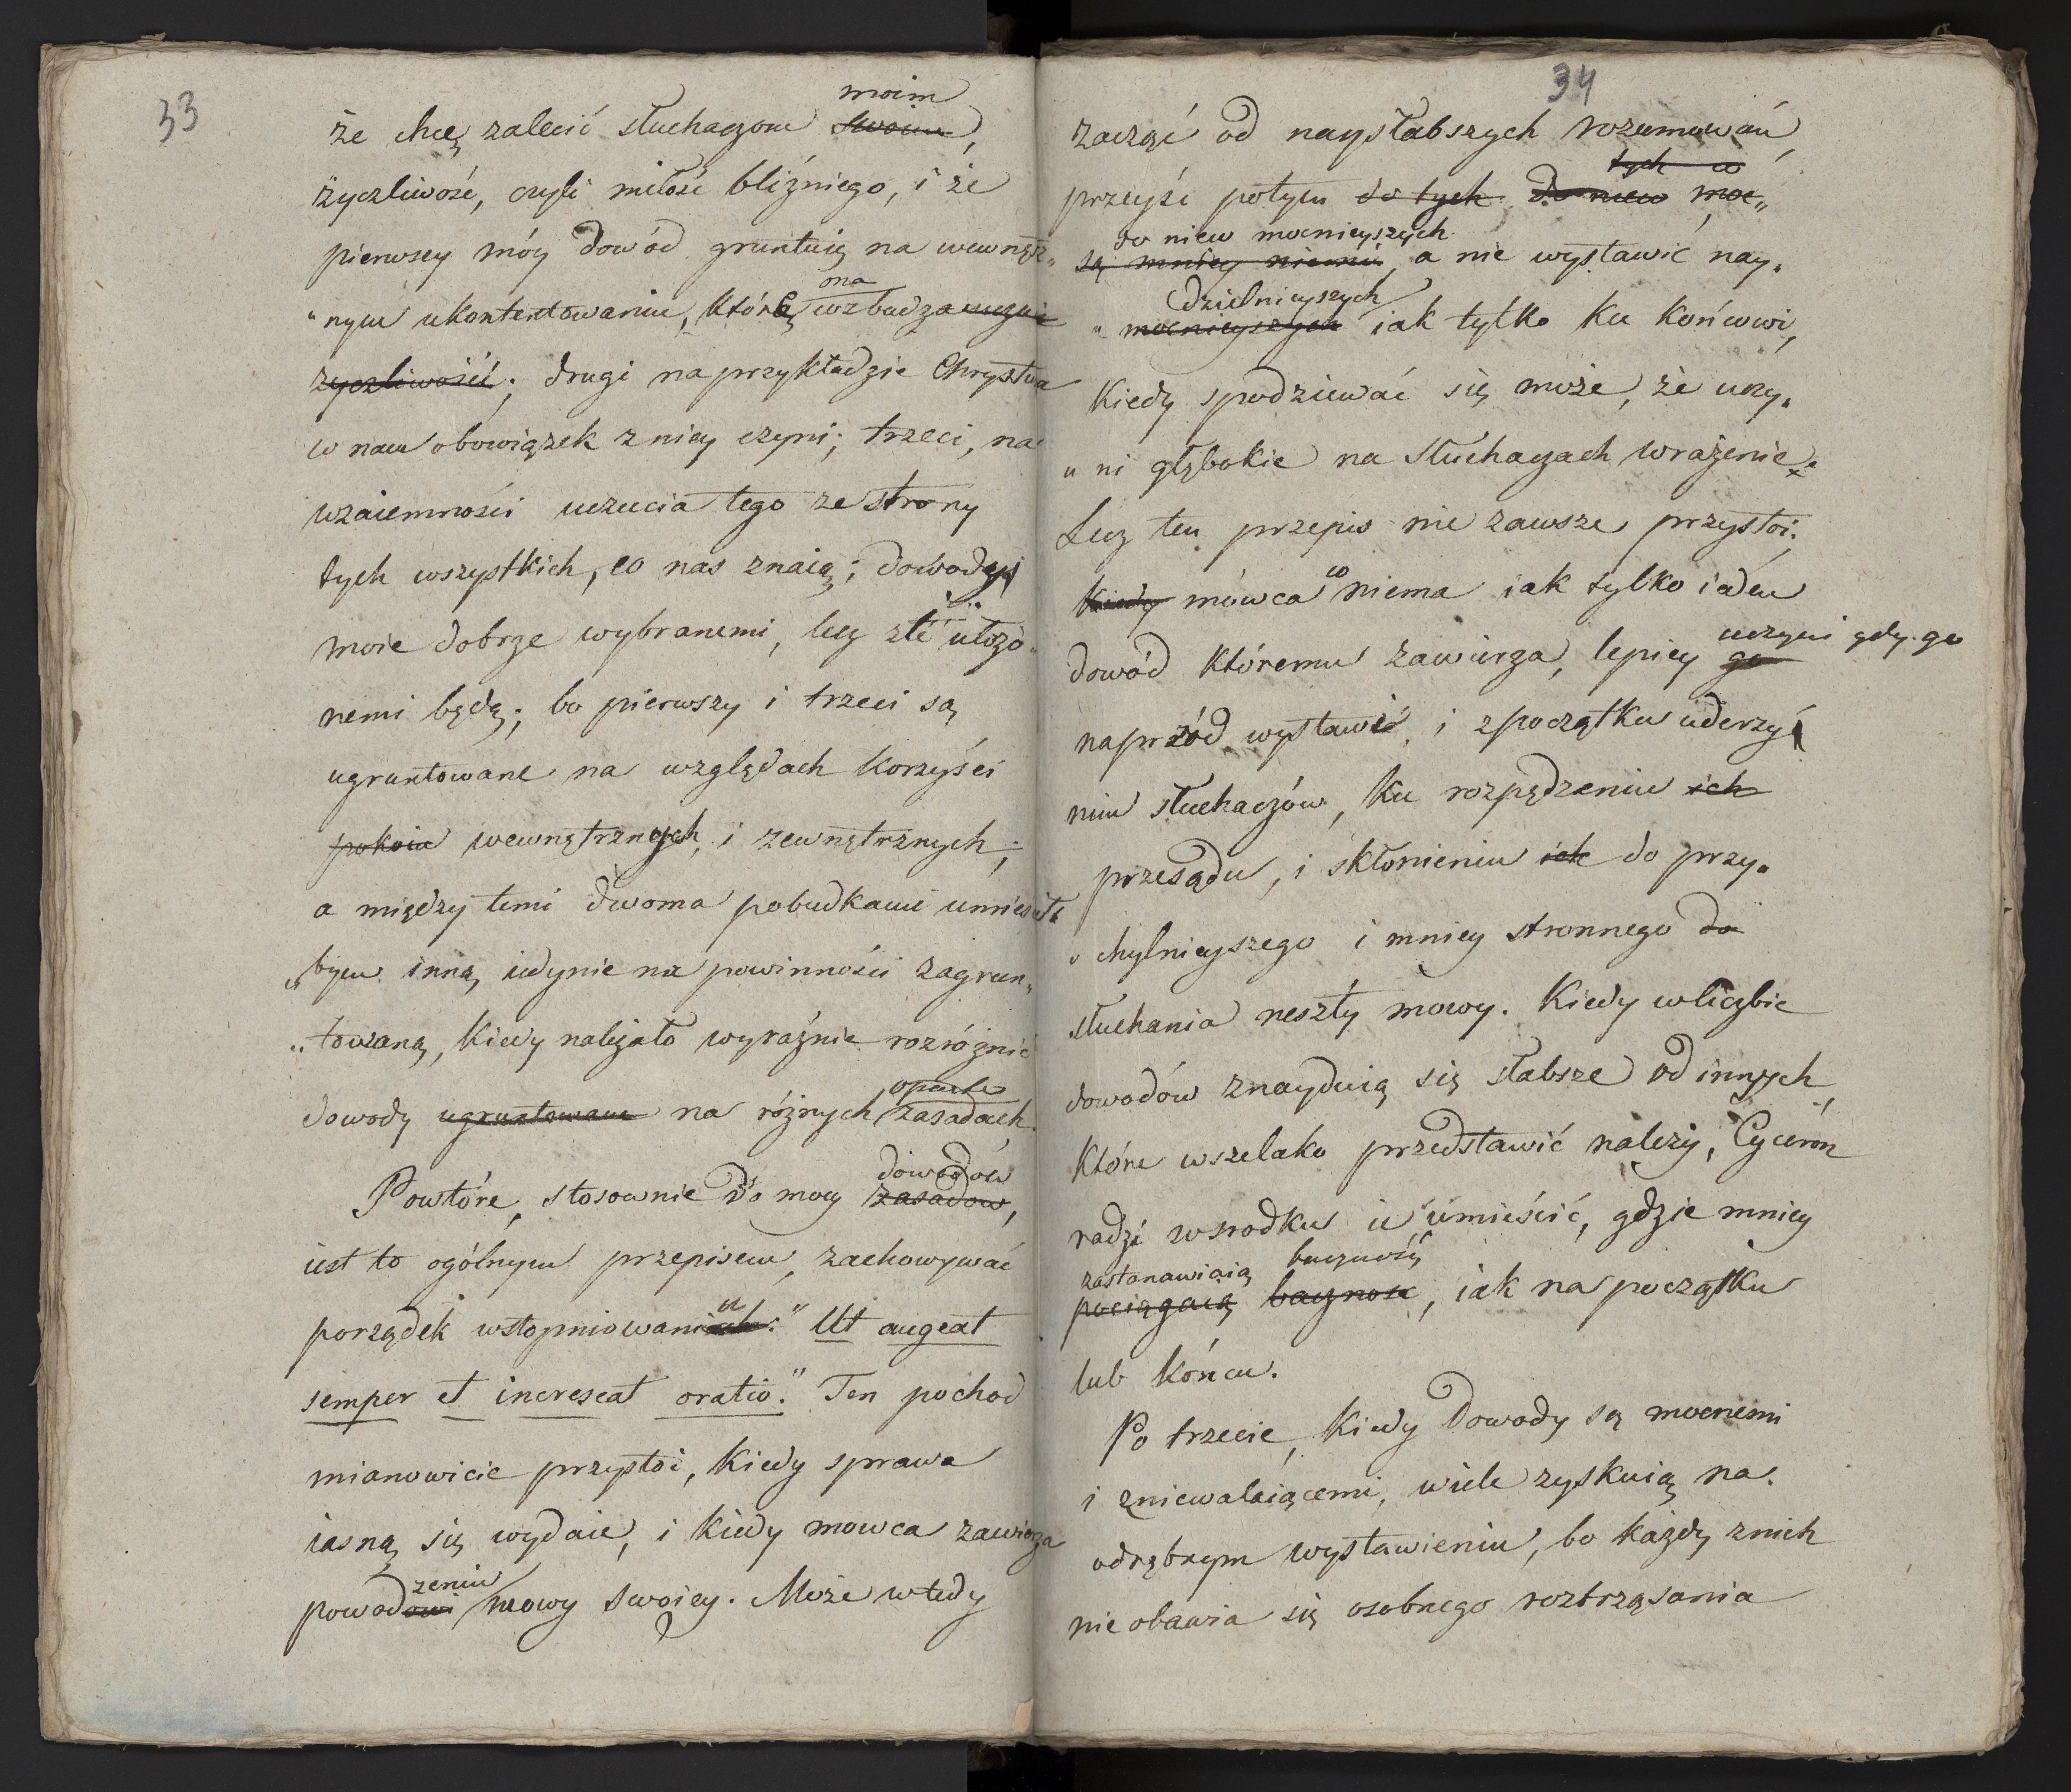 33
moim
że chcę zalecić słuchaczom swoim,
życzliwość, czyli miłość bliźniego, i że
pierwszy móy dowód gruntuię na wewnętrz„
ona
„nym ukontentowaniu, które wzbudza uczucie
życzliwości; drugi na przykładzie Chrystusa
w nam obowiązek z niey czyni; trzeci, na
wzaiemności uczucia tego ze strony
tych wszystkich, co nas znaią; dowody
moie dobrze wybranemi, lecz źle ułożo„
nemi będą; bo pierwszy i trzeci są
ugruntowane na względach korzyści
pokoiu wewnętrznych, i zewnętrznych;
a między temi dwoma pobudkami umieścił„
„bym inną iedynie na powinności zagrun„
„towaną, kiedy należało wyraźnie rozróżnić
oparte
dowody ugruntowane na różnych zasadach.
dowodów
Powtóre, stosownie do mocy zasadow,
iest to ogólnym przepisem, zachowywać
u
porządek wstopniowaniach: "Ut augeat
semper et increscat oratio." Ten pochod
mianowicie przystoi, kiedy sprawa
iasną się wydaie, i kiedy mowca zawierza
zeniu
powodowi mowy swoiey. Może wtedy
34
zacząć od naysłabszych rozumowań,
tych co
przeyśc potym do tych do niew moc„
do niew mocnieyszych
są mniey niemi, a nie wystawić nay„
dzielnieyszych
„mocnieyszych iak tylko ku końcowi,
kiedy spodziewać się może, że uczy„
„ni głębokie na słuchaczach wrażenie.
Lecz ten przepis nie zawsze przystoi;
co
kiedy mówca niema iak tylko iaden
uczyni gdy go
dowód któremu zawierza, lepiey go
naprzód wystawi, i zpoczątku uderzy
nim słuchaczów, ku rozpędzeniu ich
przesądu, i skłonieniu ich do przy„
„chylnieyszego i mniey stronnego do
słuchania reszty mowy. Kiedy w liczbie
dowodów znayduią się słabsze od innych
które wszelako przedstawić należy, Cyceron
radzi wsrodku ie umieścić, gdzie mniey
zastanawiaią baczność
pociągaią bacznosc, iak na początku
lub końcu.
Po trzecie, kiedy dowody są mocnemi
i zniewalaiącemi, wiele zyskuią na
odrębnym wystawieniu, bo każdy z nich
nie obawia się osobnego roztrząsania